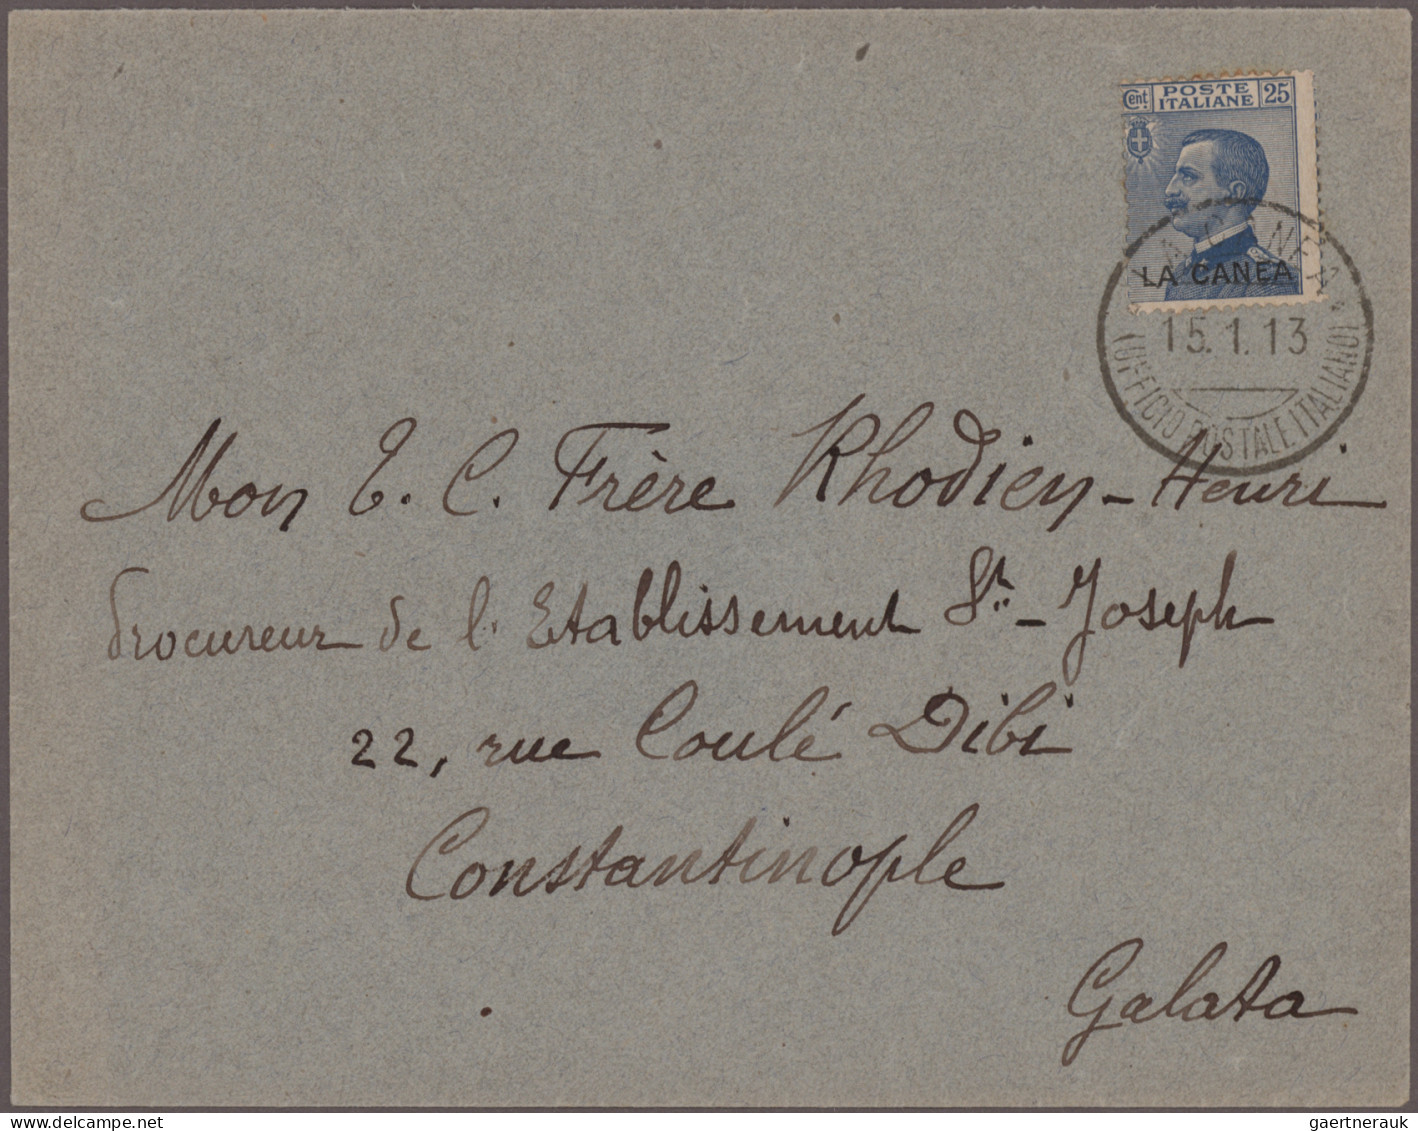 Cent. POSTE ITALIANE 25
LA CANEA
LA CANEA
15.1.13
(UFFICIO POSTALE ITALIANO)
Mon T. C. Frère Rhodien-Henri
Procureur de l'Etablissement St-Joseph
22, rue Coulé Dibi
Constantinople
Galata
gaertnerauk @ delcampe.net